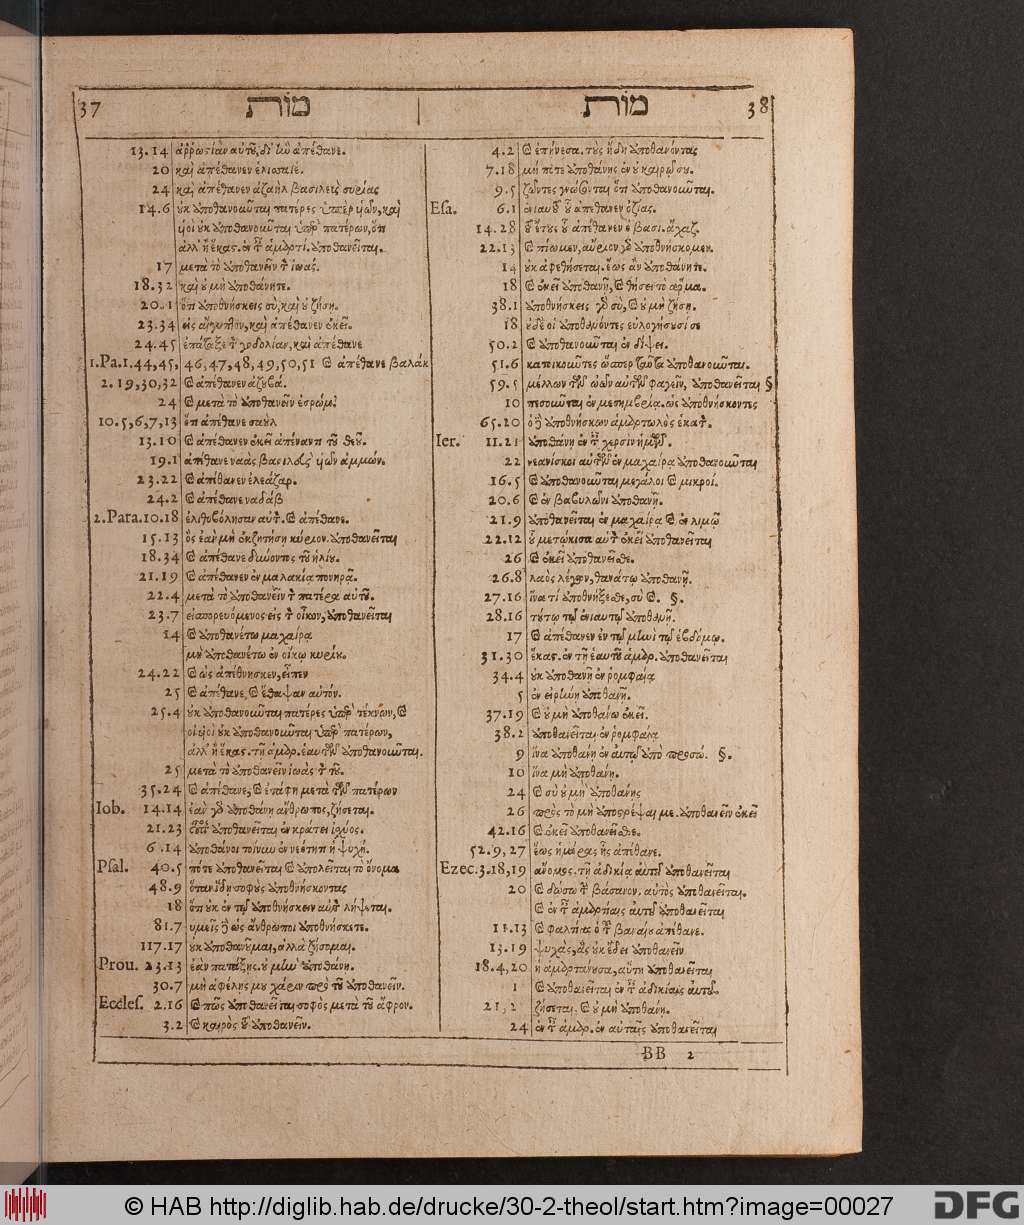 37 מות מות 38
13.14 ἀῤῥωστίαν αὐτοῦ, δι' ἣν ἀπέθανε.
20 καὶ ἀπέθανεν ἐλισσαιέ.
24 καὶ ἀπέθανεν ἀζαὴλ βασιλεὺς συρίας
14.6 οὐκ ἀποθανοῦνται πατέρες ὑπὲρ υἱῶν, καὶ
υἱοὶ οὐκ ἀποθανοῦνται ὑπὲρ πατέρων, ὅτι
ἀλλ' ἢ ἕκας. ἐν τῇ ἁμαρτί. ἀποθανεῖται.
17 μετὰ τὸ ἀποθανεῖν τὸν ἰωάς.
18.32 καὶ οὐ μὴ ἀποθάνητε.
20.1 ὅτι ἀποθνήσκεις σὺ, καὶ οὐ ζήσῃ.
23.34 εἰς αἴγυπτον, καὶ ἀπέθανεν ἐκεῖ.
24.45 ἐπάταξε τὸν γοδολίαν, καὶ ἀπέθανε
1.Pa.1.44,45, 46,47,48,49,50,51 καὶ ἀπέθανε βαλάκ
2.19,30,32 καὶ ἀπέθανεν ἀζουβά.
24 καὶ μετὰ τὸ ἀποθανεῖν ἐσρώμ.
10.5,6,7,13 ὅτι ἀπέθανε σαοὺλ
13.10 καὶ ἀπέθανεν ἐκεῖ ἀπέναντι τοῦ θεοῦ.
19.1 ἀπέθανε ναὰς βασιλεὺς υἱῶν ἀμμών.
23.22 καὶ ἀπέθανεν ἐλεάζαρ.
24.2 καὶ ἀπέθανε ναδάβ
2.Para.10.18 ἐλιθοβόλησαν αὐτὸν. καὶ ἀπέθανε.
15.13 ὃς ἐὰν μὴ ἐκζητήσῃ κύριον. ἀποθανεῖται
18.34 καὶ ἀπέθανε δύνοντος τοῦ ἡλίου.
21.19 καὶ ἀπέθανεν ἐν μαλακίᾳ πονηρᾷ.
22.4 μετὰ τὸ ἀποθανεῖν τὸν πατέρα αὐτοῦ.
23.7 εἰσπορευόμενος εἰς τὸν οἶκον, ἀποθανεῖται
14 καὶ ἀποθανέτω μαχαίρᾳ
μὴ ἀποθανέτω ἐν οἴκῳ κυρίου.
24.22 καὶ ὡς ἀπέθνησκεν, εἶπεν
25 καὶ ἀπέθανε, καὶ ἔθαψαν αὐτόν.
25.4 οὐκ ἀποθανοῦνται πατέρες ὑπὲρ τέκνων, καὶ
οἱ υἱοὶ οὐκ ἀποθανοῦνται ὑπὲρ πατέρων,
ἀλλ' ἢ ἕκας. τῇ ἁμαρ. ἑαυτῶν ἀποθανοῦνται.
25 μετὰ τὸ ἀποθανεῖν ἰωὰς τὸν τοῦ.
35.24 καὶ ἀπέθανε, καὶ ἐτάφη μετὰ τῶν πατέρων
Iob. 14.14 ἐὰν γὰρ ἀποθάνῃ ἄνθρωπος, ζήσεται.
21.23 οὗτος ἀποθανεῖται ἐν κράτει ἰσχύος.
6.14 ἀποθάνοι τοίνυν ἐν νεότητι ἡ ψυχή.
Psal. 40.5 πότε ἀποθανεῖται καὶ ἀπολεῖται τὸ ὄνομα
48.9 ὅταν ἴδῃ σοφοὺς ἀποθνήσκοντας
18 ὅτι οὐκ ἐν τῷ ἀποθνήσκειν αὐτὸν λήψεται.
81.7 ὑμεῖς δὲ ὡς ἄνθρωποι ἀποθνήσκετε.
117.17 οὐκ ἀποθανοῦμαι, ἀλλὰ ζήσομαι.
Prou. 23.13 ἐὰν πατάξῃς. οὐ μὴν ἀποθάνῃ.
30.7 μὴ ἀφέλῃς μου χάριν πρὸ τοῦ ἀποθανεῖν.
Eccles. 2.16 καὶ πῶς ἀποθανεῖται σοφὸς μετὰ τοῦ ἄφρον.
3.2 καὶ καιρὸς τοῦ ἀποθανεῖν.
4.2 καὶ ἐπῄνεσα. τοὺς ἤδη ἀποθανόντας
7.18 μή ποτε ἀποθάνῃς ἐν οὐ καιρῷ σου.
9.5 ζῶντες γνώσονται ὅτι ἀποθανοῦνται.
Esa. 6.1 ἐνιαυτοῦ οὗ ἀπέθανεν ὀζίας.
14.28 τοῦ ἔτους οὗ ἀπέθανεν ὁ βασι. ἄχαζ.
22.13 καὶ πίωμεν, αὔριον γὰρ ἀποθνήσκομεν.
14 οὐκ ἀφεθήσεται. ἕως ἂν ἀποθάνητε.
18 καὶ ἐκεῖ ἀποθανῇ, καὶ θήσει τὸ ἅρμα.
38.1 ἀποθνήσκεις γὰρ σὺ, καὶ οὐ μὴ ζήσῃ.
18 οὐδὲ οἱ ἀποθανόντες εὐλογήσουσί σε
50.2 καὶ ἀποθανοῦνται ἐν δίψει.
51.6 κατοικοῦντες ὥσπερ ταῦτα ἀποθανοῦνται.
59.5 μέλλων τῶν ὠῶν αὐτῶν φαγεῖν, ἀποθανεῖται §
10 πεσοῦνται ἐν μεσημβρίᾳ. ὡς ἀποθνήσκοντες
65.20 ὁ δὲ ἀποθνήσκων ἁμαρτωλὸς ἑκατ.
Ier. 11.21 ἀποθάνῃ ἐν ταῖς χερσὶν ἡμῶν.
22 νεανίσκοι αὐτῶν ἐν μαχαίρᾳ ἀποθανοῦνται
16.5 καὶ ἀποθανοῦνται μεγάλοι καὶ μικροί.
20.6 καὶ ἐν βαβυλῶνι ἀποθανῇ.
21.9 ἀποθανεῖται ἐν μαχαίρᾳ καὶ ἐν λιμῷ
22.12 οὗ μετῴκισα αὐτὸν ἐκεῖ ἀποθανεῖται
26 καὶ ἐκεῖ ἀποθανεῖσθε.
26.8 λαὸς λέγων, θανάτῳ ἀποθανῇ.
27.16 ἵνα τί ἀποθνήξεσθε, σὺ καὶ. §.
28.16 τούτῳ τῷ ἐνιαυτῷ ἀποθανῇ.
17 καὶ ἀπέθανεν ἐν τῷ μηνὶ τῷ ἑβδόμῳ.
31.30 ἕκας. ἐν τῇ ἑαυτοῦ ἁμαρ. ἀποθανεῖται
34.4 οὐκ ἀποθανῇ ἐν ρομφαίᾳ
5 ἐν εἰρήνῃ ἀποθανῇ.
37.19 καὶ οὐ μὴ ἀποθάνω ἐκεῖ.
38.2 ἀποθανεῖται ἐν ῥομφαίᾳ
9 ἵνα ἀποθάνῃ ἐν αὐτῷ ἀπὸ προσώ. §.
10 ἵνα μὴ ἀποθάνῃ.
24 καὶ σὺ οὐ μὴ ἀποθάνῃς
26 πρὸς τὸ μὴ ἀποστρέψαι με. ἀποθανεῖν ἐκεῖ
42.16 καὶ ἐκεῖ ἀποθανεῖσθε.
52.9,27 ἕως ἡμέρας ἧς ἀπέθανε.
Ezec.3.18,19 ἄνομος. τῇ ἀδικίᾳ αὐτοῦ ἀποθανεῖται
20 καὶ δώσω τὴν βάσανον. αὐτὸς ἀποθανεῖται.
καὶ ἐν ταῖς ἁμαρτίαις αὐτοῦ ἀποθανεῖται
11.13 καὶ φαλτίας ὁ τοῦ βαναίου ἀπέθανε.
13.19 ψυχὰς, ἃς οὐκ ἔδει ἀποθανεῖν
18.4,20 ἡ ἁμαρτάνουσα, αὕτη ἀποθανεῖται
καὶ ἀποθανεῖται ἐν ταῖς ἀδικίαις αὐτοῦ.
21,2 ζήσεται. καὶ οὐ μὴ ἀποθάνῃ.
24 ἐν ταῖς ἁμαρ. ἐν αὐταῖς ἀποθανεῖται
BB 2
© HAB http://diglib.hab.de/drucke/30-2-theol/start.htm?image=00027
DFG